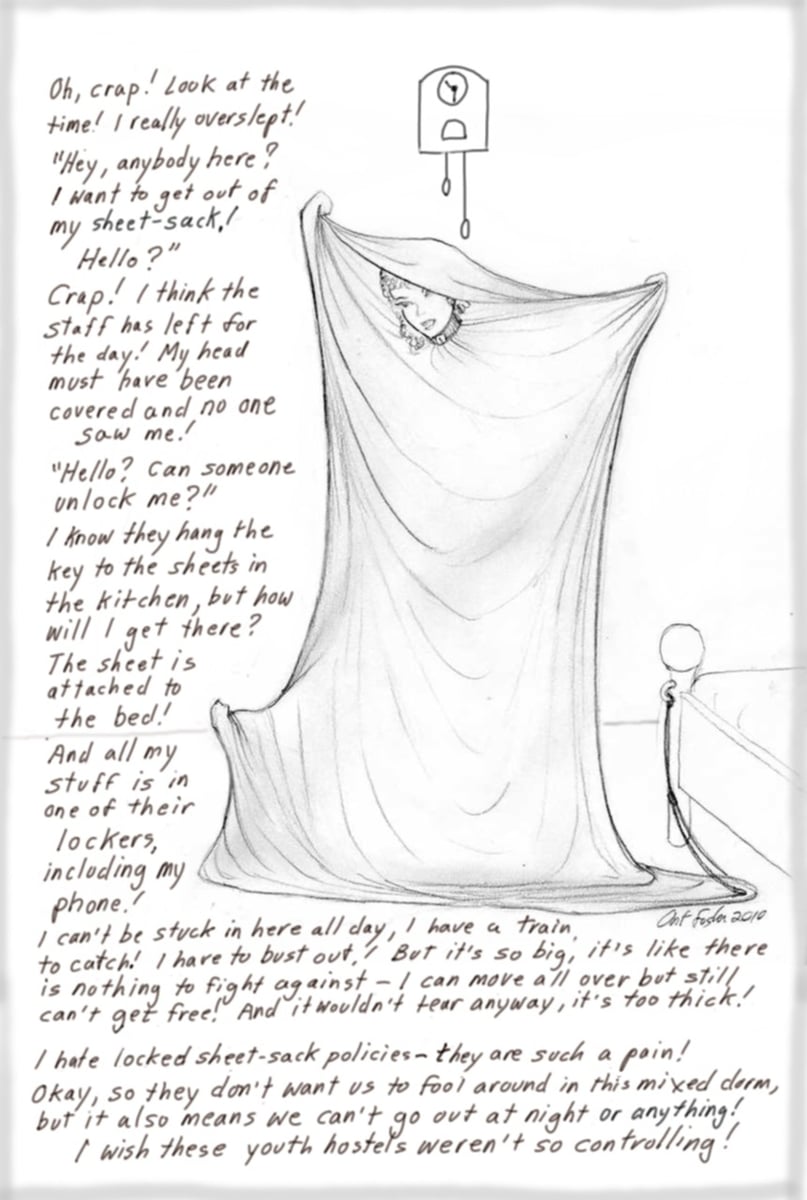 Oh, crap! Look at the
time! I really overslept!
"Hey, anybody here?
I want to get out of
my sheet-sack!
Hello?"
Crap! I think the
staff has left for
the day! My head
must have been
covered and no one
saw me!
"Hello? Can someone
unlock me?"
I know they hang the
key to the sheets in
the kitchen, but how
will I get there?
The sheet is
attached to
the bed!
And all my
stuff is in
one of their
lockers,
including my
phone!
I can't be stuck in here all day, I have a train
to catch! I have to bust out! But it's so big, it's like there
is nothing to fight against – I can move all over but still
can't get free! And it wouldn't tear anyway, it's too thick!
I hate locked sheet-sack policies – they are such a pain!
Okay, so they don't want us to fool around in this mixed dorm,
but it also means we can't go out at night or anything!
I wish these youth hostels weren't so controlling!
2010